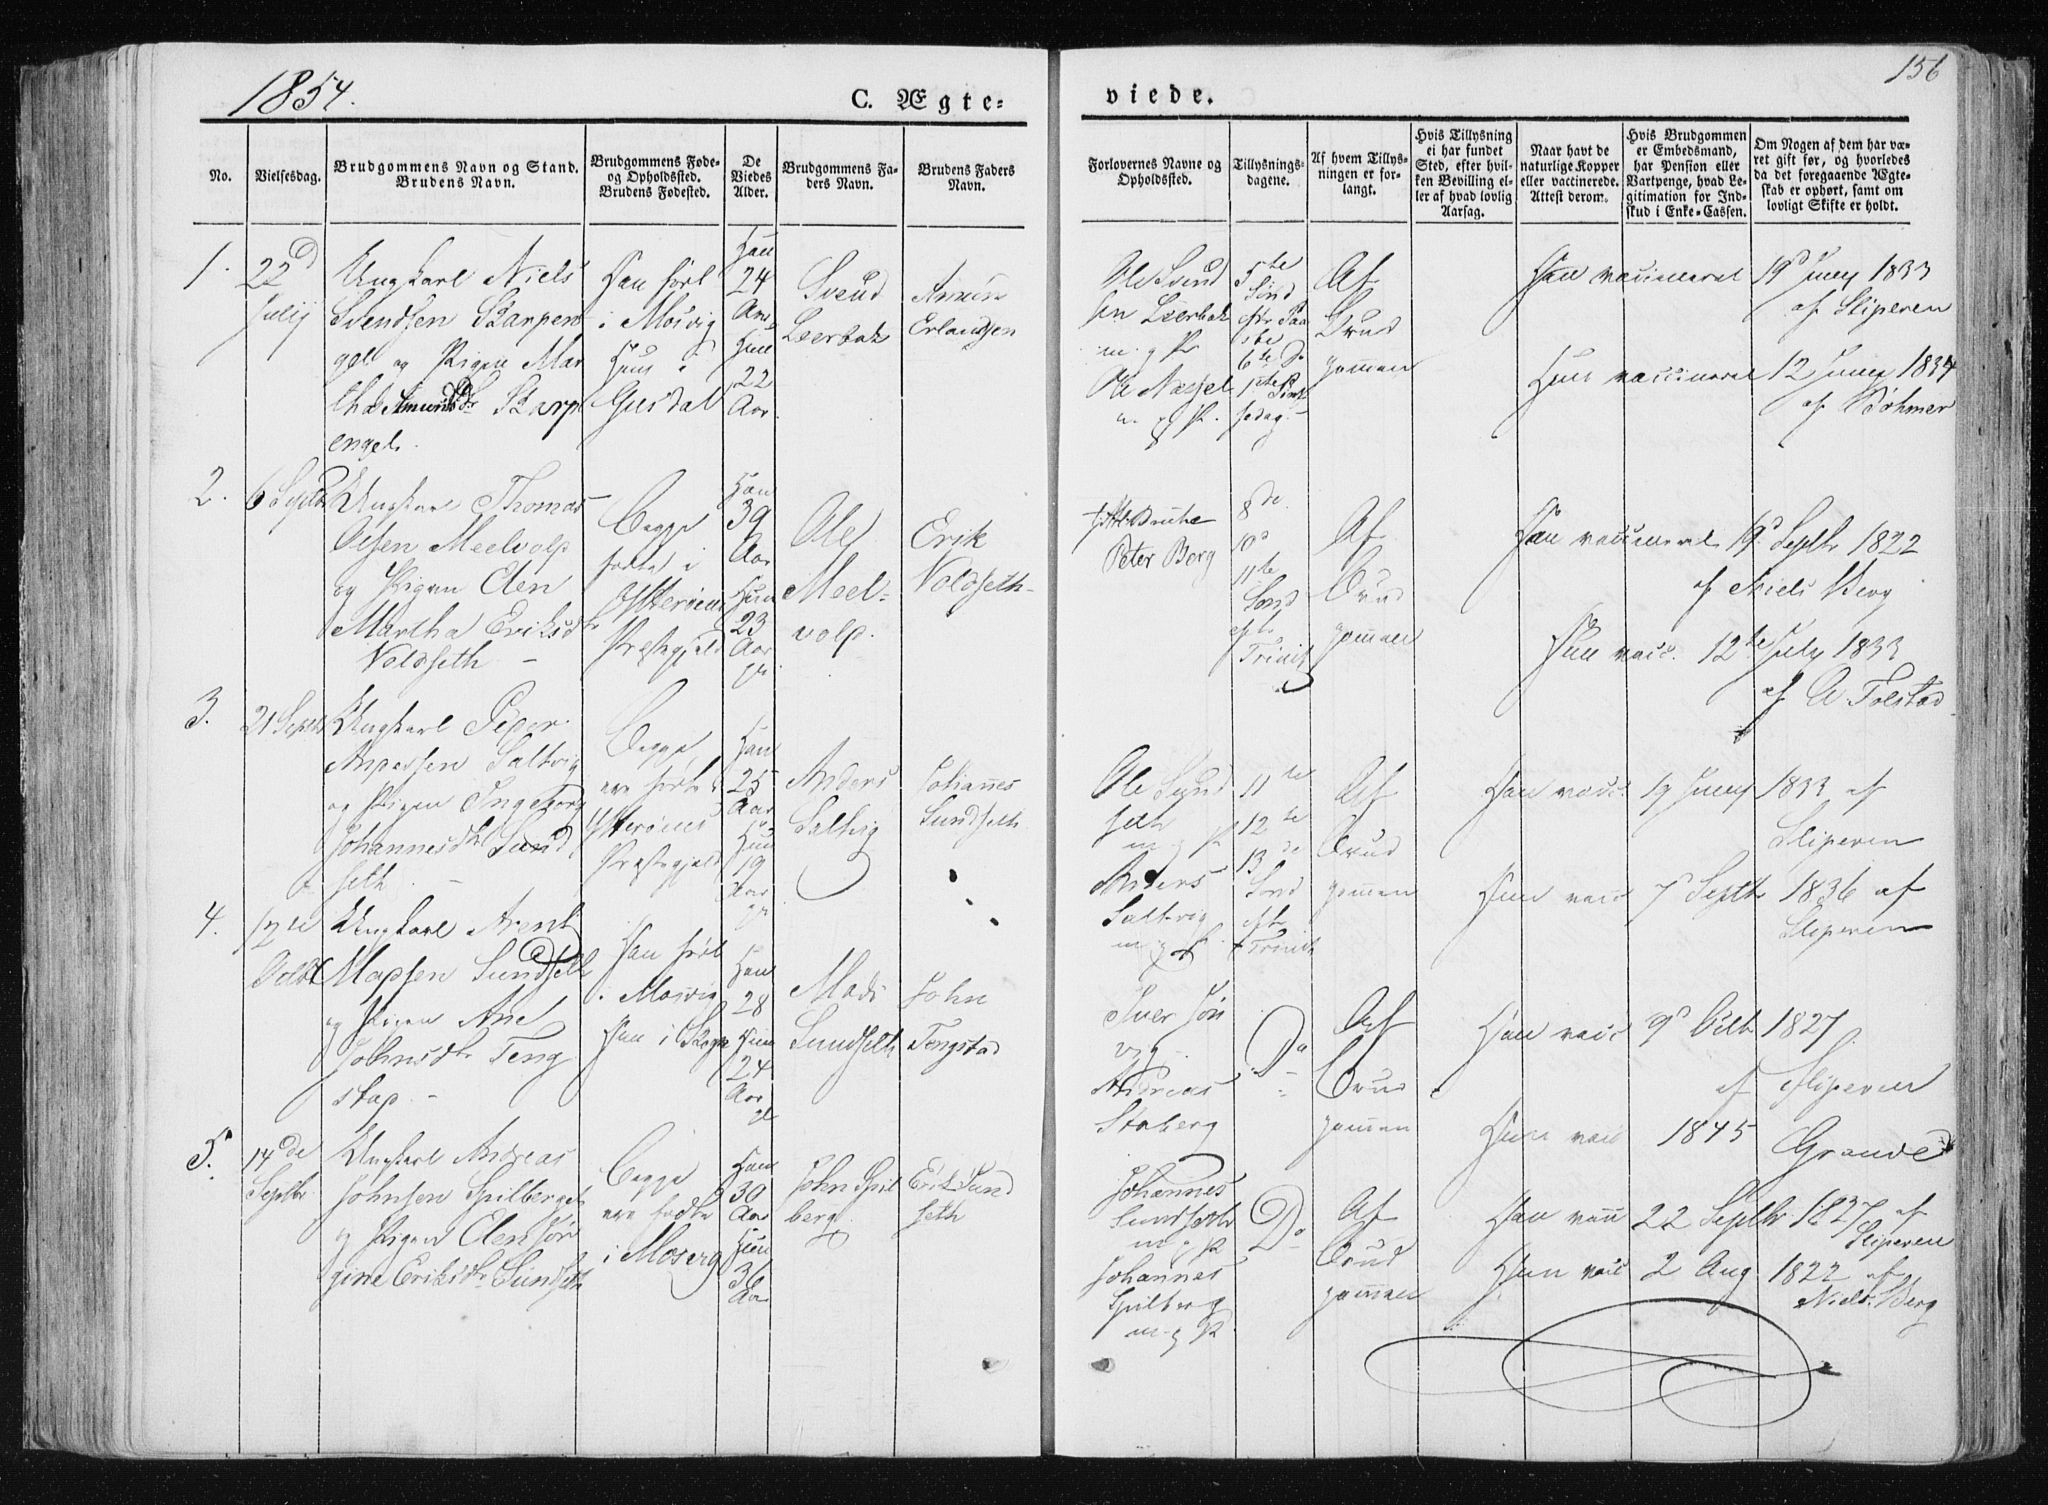 1854.
C. Ægte=
viede.
156
No.
Vielsesdag.
Brudgommens Navn og Stand.
Brudens Navn.
Brudgommens Føde-
og Opholdssted.
Brudens Fødested.
De
Viedes
Alder.
Brudgommens Fa-
ders Navn.
Brudens Faders
Navn.
Forlovernes Navne og
Opholdssted.
Tillysnings-
dagene.
Af hvem Tillys-
ningen er for-
langt.
Hvis Tillysning
ei har fundet
Sted, efter hvil-
ken Bevilling el-
ler af hvad lovlig
Aarsag.
Naar havt de
naturlige Kopper
eller vaccinerede.
Attest derom.
Hvis Brudgommen
er Embedsmand,
har Pension eller
Vartpenge, hvad Le-
gitimation for Ind-
skud i Enke-Cassen.
Om Nogen af dem har væ-
ret gift før, og hvorledes
da det foregaaende Ægte-
skab er ophørt, samt om
lovligt Skifte er holdt.
1.
22d
July
Ungkarl Niels
Svendsen Skarpen
gel og Pigen Mar
tha Amundsdr Skarp
engel.
Han født
i Mosvig
Hun i
Gusdal
Han
24
Aar
Hun
22
Aar
Svend
Leerbak
Amun
Erlandsen
Ole Svend
sen Leerbak
m. g P.
Ole
m. g P.
5te
Sønd
6te
Af
Brud
gommen
Han vaccineret 19d Juny 1833
af Sliperen
Hun vaccineret 12 Juny 1834
af Bøhmer
2.
6 Septbr
Ungkarl Thomas
Olsen Meelvold
og Pigen Elen
Martha Eriksdr
Voldseth –
Begge
fødte i
Ytterøens
Præstegjeld
Han
39
Aar
Hun
23
Aar
Ole
Meel=
vold.
Erik
Voldseth
Peter Berg
8de
10d
11te
Sønd
eft
Trinit
Af
Brud
gommen
Han vaccineret 19d Septbr 1822
af Niels Berg
Hun vacc. 12te July 1833
af A Folstad
3.
21 Septbr
Ungkarl Peder
Andersen Saltvig
og Pigen Ingeborg
Johannesdtr Sund
seth. –
Begge
ere fødte i
Ytterøens
Præstegjeld
Han
25
Aar
Hun
19
Aar
Anders
Saltvig
Johannes
Sundseth
Ole Sund
seth
m g P
Anders
Saltvig
m g P.
11te
12te
13de
Sønd
eft
Trinit
Af
Brud
gommen
Han vacc. 19 Juny 1833 af
Sliperen
Hun vacc 7d Septbr 1836 af
Sliperen
4.
12te
Octbr
Ungkarl Arent
Madsen Sundseth
og Pigen Ane
Johnsdtr Teng
stad. –
Han født
i Mosvig
Hun i
Han
28
Hun
24
Aar
Mads
Sundseth
John
Tengstad
Iver Jør
vig
Andreas
Staberg
Do
Af
Brud
gommen
Han vacc 9d Octbr 1827.
af Sliperen
Hun vacc 1845 Grande
5.
14de
Septbr
Ungkarl Andreas
Johnsen Spilberget
og Pigen Elen Jør
gine Eriksdtr Sundseth
Begge
ere fødte
i Mosvig
Han
30
Aar
Hun
36
Aar
John Spil
berg
Erik Sund
seth
Johannes
Sundseth
m. g P
Johannes
Spilberg
m. g P
Do
Af
Brud
gommen
Han vacc 22 Septbr 1827 af
Sliperen
Hun vacc 2 Aug 1822 af
Niels Berg